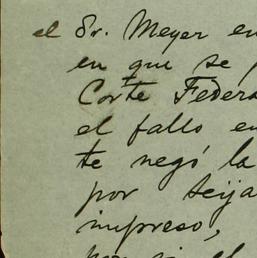 el Sr. Meyer en
en que se
Corte Federa
el fallo en
te negó la
por Seija
impreso,